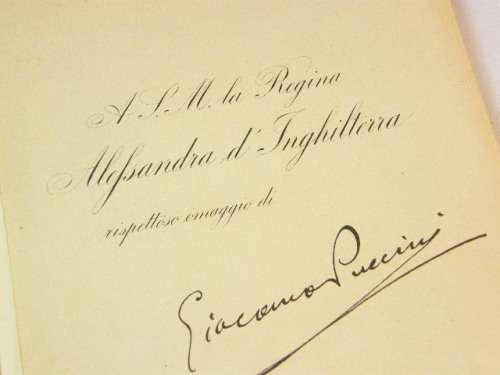 A S. M. la Regina
Alessandra d'Inghilterra
rispettoso omaggio di
Giacomo Puccini